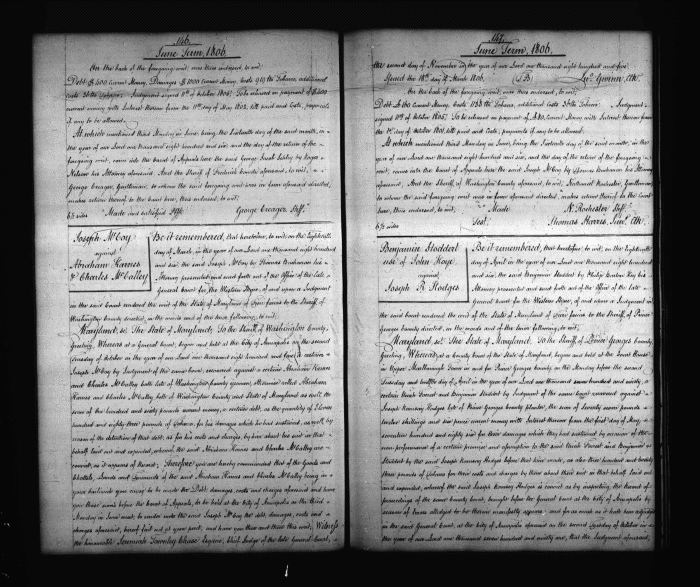 146.
June Term, 1806.
On the back of the foregoing writ, was thus endorsed, to wit,
Debt £600 Current Money, Damages £1000 Current Money, Costs Tobacco, additional
Costs Tobacco. Judgment signed 8th of October 1805. To be released on payment of
current money with Interest thereon from the 11th day of May 1802, till paid and Costs, payments
if any to be allowed.
At which mentioned third Monday in June, being the Sixteenth day of the said month, in
the year of our Lord one thousand eight hundred and six, and the day of the return of the
foregoing writ, came into the Court of Appeals here the said George Jacob by Roger
Nelson his Attorney aforesaid. And the Sheriff of Frederick County aforesaid, to wit, a
George Creager, Gentleman, to whom the said foregoing writ was in form aforesaid directed,
makes return thereof to the Court here, thus endorsed, to wit;
6/2 sides "Made and satisfied George Creager Shff."
Joseph McCoy
against
Abraham Harnes
& Charles McCalley
Be it remembered, that heretofore, to wit, on the Eighteenth
day of March, in the year of our Lord one thousand eight hundred
and six, the said Joseph McCoy by Thomas Buchanan his
Attorney prosecuted and sued forth out of the Office of the late
general Court for the Western Shore, of and upon a Judgment
in the said Court rendered the writ of the State of Maryland of fieri facias to the Sheriff of
Washington County directed, in the words and of the tenor following, to wit;
Maryland, sc. The State of Maryland, To the Sheriff of Washington County,
Greeting, Whereas at a general Court, begun and held at the City of Annapolis on the second
Tuesday of October in the year of our Lord one thousand eight hundred and a certain
Joseph McCoy by Judgment of the same Court, recovered against a certain Abraham Harnes
and Charles McCalley both late of Washington County yeomen, otherwise called Abraham
Harnes and Charles McCalley both of Washington County and State of Maryland as well the
sum of one hundred and sixty pounds current money, a certain debt, as the quantity of Eleven
hundred and eighty three pounds of Tobacco for his damages which he had sustained, as well, by
reason of the detention of that debt, as for his costs and charges, by him about his suit in that
behalf laid out and expended, whereof the said Abraham Harnes and Charles McCalley are
convict, as it appears of record; Therefore you are hereby commanded that of the Goods and
Chattels, Lands and Tenements of the said Abraham Harnes and Charles McCalley being in
your bailiwick you cause to be made the Debt, damages, costs and charges aforesaid and have
you those sums before the Court of Appeals, to be held at the City of Annapolis on the third
Monday in June next, to render unto the said Joseph McCoy the debt, damages, costs and
charges aforesaid, hereof fail not at your peril, and have you then and there this writ, Witness
the honourable Jeremiah Townley Chase Esquire, Chief Judge of the late General Court,
147.
June Term, 1806.
the second day of November in the year of our Lord one thousand eight hundred and five.
Issued the 18th day of March 1806. Jno. Gwinn, Clk.
On the back of the foregoing writ, was thus endorsed, to wit;
Debt £160 Current Money, Costs 1183 lbs Tobacco, additional Costs Tobacco. Judgment
signed 11th of October 1805. To be released on payment of Current Money with Interest thereon from
the 1st day of October 1801, till paid and Costs, payments if any to be allowed.
At which mentioned third Monday in June, being the Sixteenth day of the said month, in the
year of our Lord one thousand eight hundred and six, and the day of the return of the foregoing
writ, came into the Court of Appeals here the said Joseph McCoy by Thomas Buchanan his Attorney
aforesaid, And the Sheriff, of Washington County aforesaid, to wit, Nathaniel Rochester, Gentleman,
to whom the said foregoing writ was in form aforesaid directed, makes return thereof to the Court
here, thus endorsed, to wit; "Made N. Rochester Shff."
6/2 sides Test. Thomas Harris, Junr. Clk.
Benjamin Stoddert
use of John Hoye
against
Joseph R. Hodges
Be it remembered, that heretofore, to wit, on the Eighteenth
day of April in the year of our Lord one thousand eight hundred
and six, the said Benjamin Stoddert by Philip Barton Key his
Attorney prosecuted and sued forth out of the Office of the late
general Court for the Western Shore, of and upon a Judgment in
the said Court rendered the writ of the State of Maryland of fieri facias to the Sheriff of Prince
Georges County directed, in the words and of the tenor following, to wit;
Maryland, sct. The State of Maryland, To the Sheriff of Prince Georges County,
Greeting, Whereas at a County Court of the State of Maryland begun and held at the Court House
in Upper Marlborough Town in and for Prince Georges County, on the Monday before the second
Tuesday and twelfth day of April in the year of our Lord one thousand seven hundred and ninety, a
certain Uriah Forrest and Benjamin Stoddert by Judgment of the same Court recovered against
Joseph Ramsey Hodges late of Prince Georges County planter, the sum of Seventy seven pounds
twelve shillings and six pence current money with Interest thereon from the first day of May
seventeen hundred and eighty six for their damages which they had sustained by occasion of the
non performance of a certain promise and assumption to the said Uriah Forrest and Benjamin
Stoddert by the said Joseph Ramsey Hodges before that time made, as also three hundred and twenty
three pounds of Tobacco for their costs and charges by them about their suit in that behalf laid out
and expended, whereof the said Joseph Ramsey Hodges is convict as by inspecting the Record of
proceedings of the same County Court, brought before the General Court at the City of Annapolis by
reason of Errors alledged to be therein manifestly appears; and for as much as it hath been adjudged
in the said General Court, at the City of Annapolis aforesaid on the second Tuesday of October in
the year of our Lord one thousand seven hundred and ninety one, that the Judgment aforesaid,